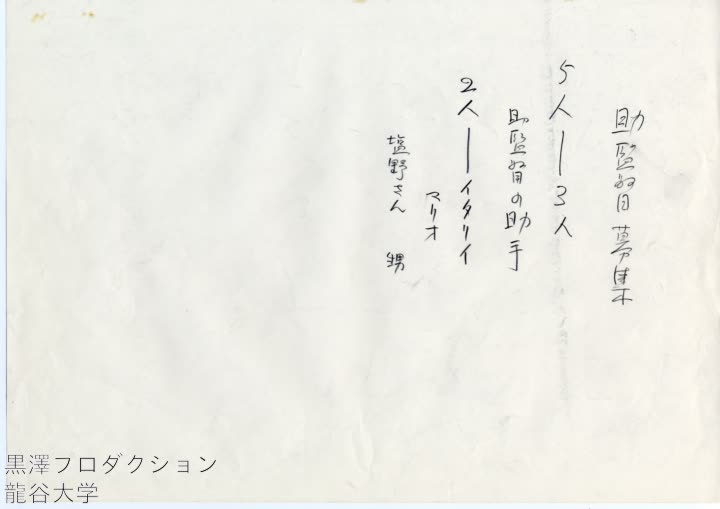 助監督募集
5人―3人
助監督の助手
2人―イタリイ
マリオ
塩野さん 甥
黒澤フロダクション
龍谷大学